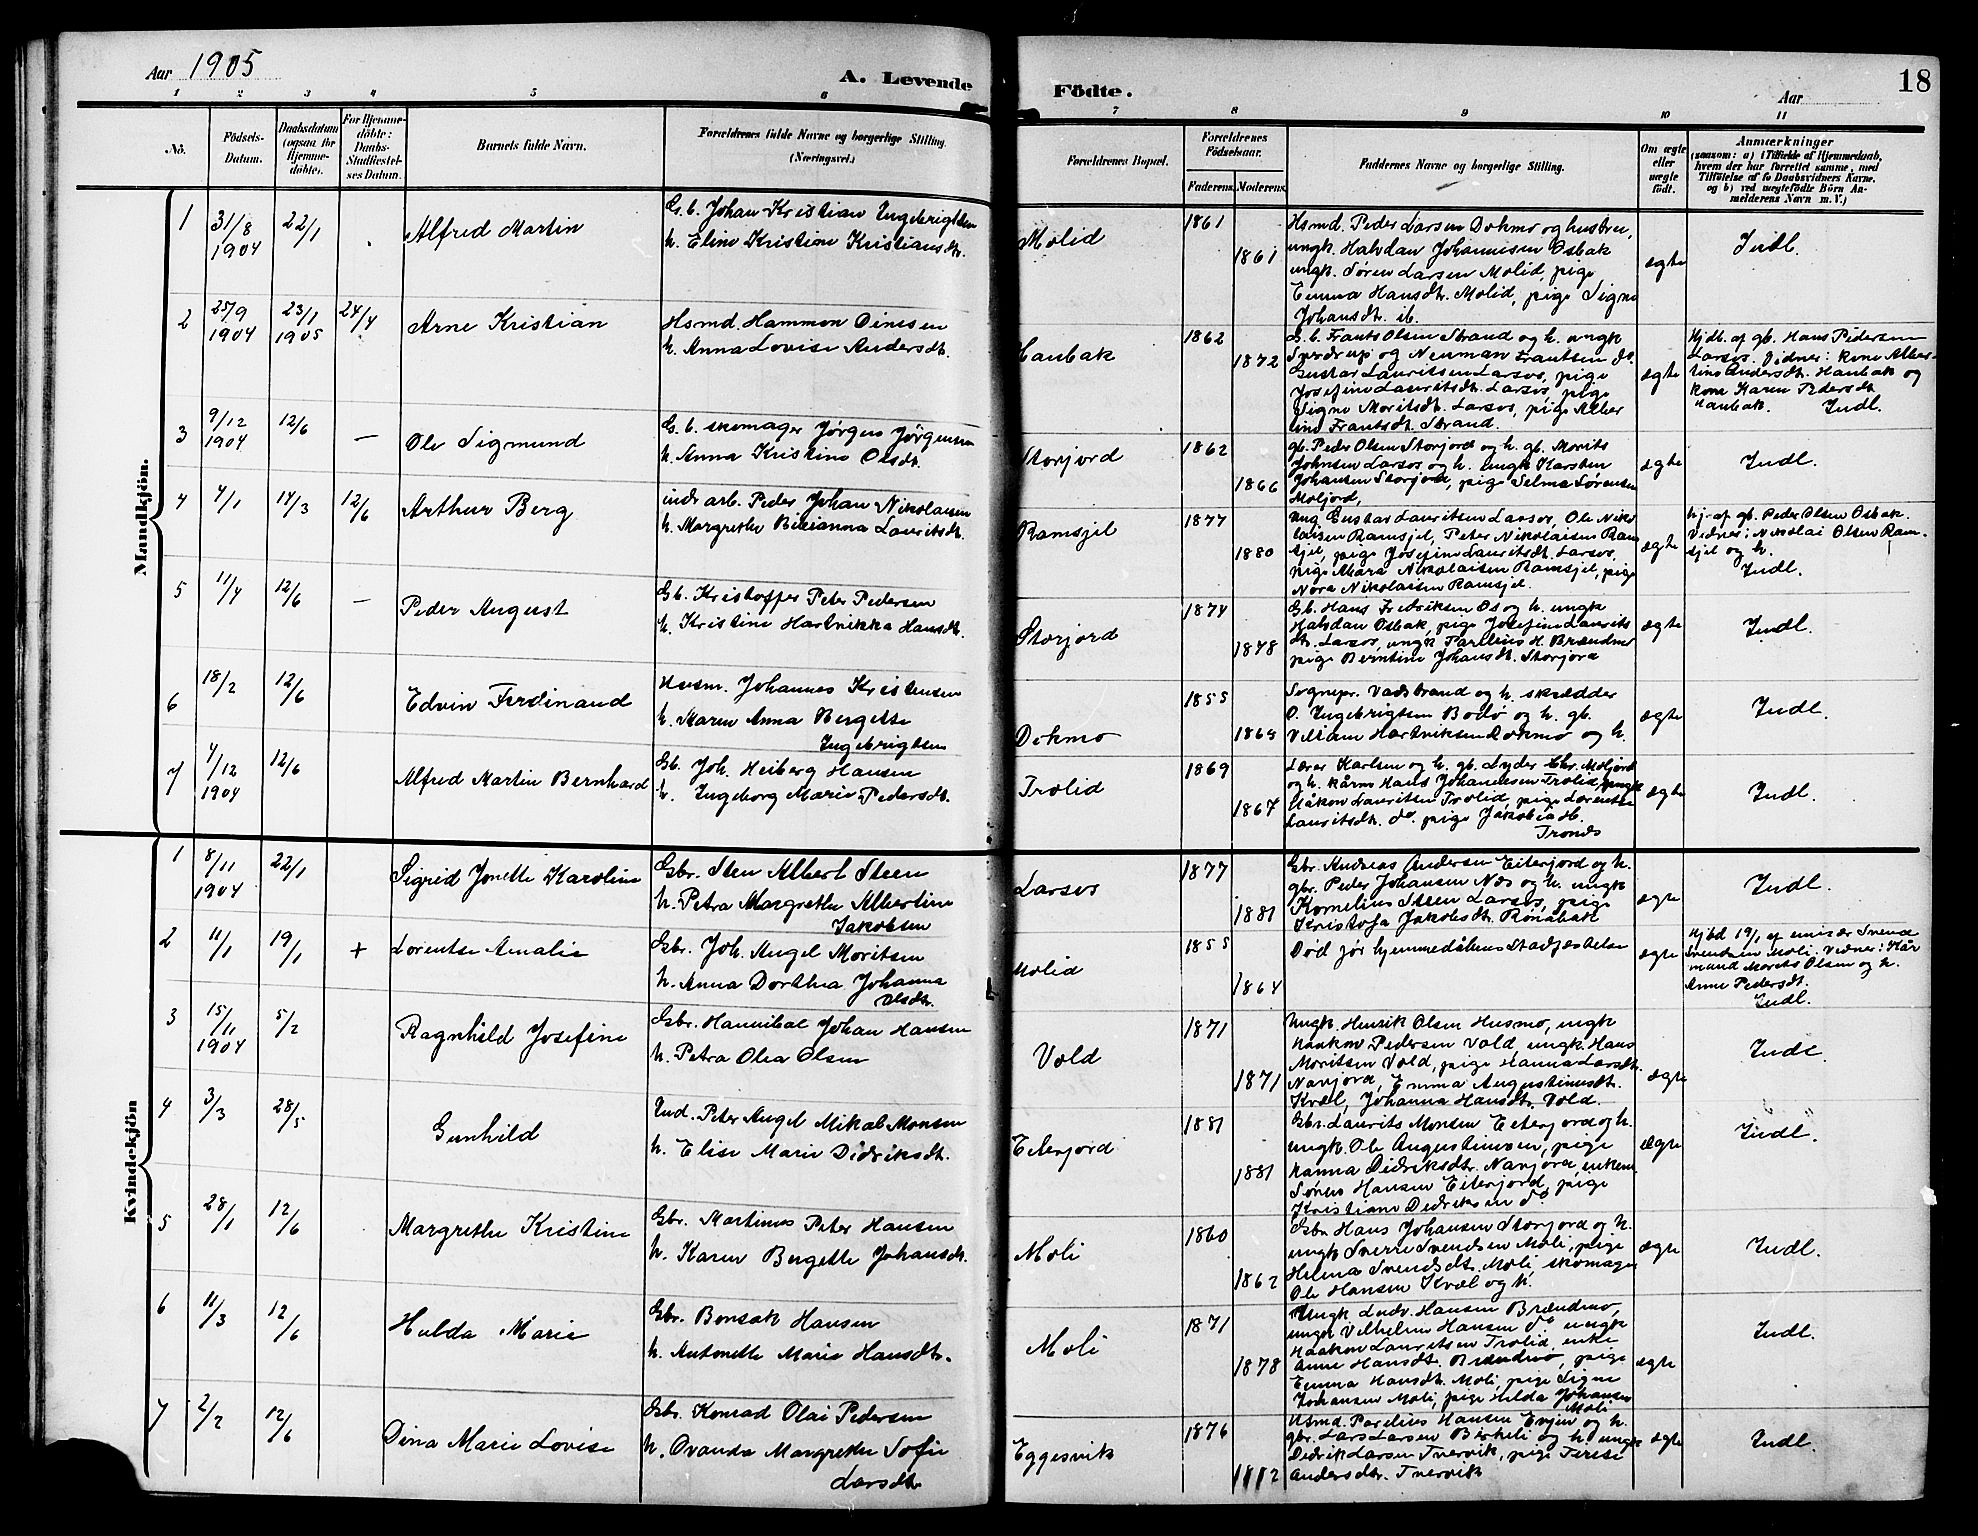 Aar 1905
A. Levende
Födte.
Aar
18
1 2 3 4 5 6 7 8 9 10 11
No.
Födsels-
Datum.
Daabsdatum
(ogsaa for
Hjemme-
döbte).
For Hjemme-
döbte:
Daabs-
Stadfæstel-
ses Datum.
Barnets fulde Navn.
Forældrenes fulde Navne og borgerlige Stilling.
(Næringsvei.)
Forældrenes Bopæl.
Forældrenes
Födselsaar.
Faderens. Moderens.
Faddernes Navne og borgerlige Stilling.
Om ægte
eller
uægte
födt.
Anmærkninger
(saasom: a) i Tilfælde af Hjemmedaab,
hvem der har forrettet samme, med
Tilföielse af to Daabsvidners Navne.
og b) ved uægtefödte Börn An-
melderens Navn m. V.)
Mandkjön.
1 31/8 1904 22/1 Alfred Martin
G.b. Johan Kristian Ingebrigtsen
h. Eline Kristine Kristiansdt.
Molid 1861 1861
Hsmd. Peder Larsen Dokmo og hustru,
ungk. Halvdan Johannesen Osbak
ungk. Sören Larsen Molid, pige
Emma Hansdt. Molid, pige Signe
Johansdt. ib.
ægte Indl.
2 25/9 1904 23/1 1905 24/4 Arne Kristian
Hsmd. Hammon Dinesen
h. Anna Lovise Andersdt.
Haubak 1862 1872
G.b. Frants Olsen Strand og h. ungk
Sverdrup og Neuman Frantsen do.
Gustav Lauritsen Larsos, pige
Josefine Lauritsdt. Larsos, pige
Signe Moritsdt. Larsos, pige Alber
tine Frantsdt. Strand.
ægte
Hjdb. af gb. Hans Pedersen
Larsos. Vidner: kone Alber-
tine Andersdt. Haubak og
kone Karen Pedersdt
Haubak. Indl.
3 9/12 1904 12/6 — Ole Sigmund
G.b. skomager Jörgen Jörgensen
h. Anna Kristine Olsdt.
Storjord 1862 1866
gb. Peder Olsen Storjord og h. gb. Morits
Johnsen Larsos og h. ungk Karsten
Johansen Storjord, pige Selma Sörensen
Moljord,
ægte Indl.
4 4/1 14/3 12/6 Arthur Berg
indr arb. Peder Johan Nikolaisen
h. Margrethe Benianna Lauritsdt.
Ramsjel 1877 1880
Ung. Gustav Lauritsen Larsos, Ole Niko
laisen Ramsjel, Peter Nikolaisen Ram
sjel, pige Josefine Lauritsdt. Larsos,
pige Mara Nikolaisen Ramsjel, pige
Nora Nikolaisen Ramsjel.
ægte
hj. af gb. Peder Olsen Osbak.
Vidner: Nikolai Olsen Ram-
sjel og h.
Indl.
5 11/4 12/6 — Peder August
Gb. Kristoffer Peter Pedersen
h. Kristine Hartvikka Hansdt.
Storjord 1874 1878
Gb. Hans Fredriksen Os og h. ungk
Halvdan Osbak, pige Josefine Laurits
dt. Larsos, ungk Parelius H. Brændmo
pige Berntine Johansdt. Storjord
ægte Indl.
6 18/2 12/6 Edvin Ferdinand
Husm. Johannes Kristensen
h. Maren Anna Bergette
Ingebrigtsen
Dokmo 1855 1864
Sognepr. Vadstrand og h. skrædder
O. Ingebrigtsen Bodö og h. gb.
Veliam Hartviksen Dokmo og h.
ægte Indl.
7 4/12 1904 12/6 Alfred Martin Bernhard
Gb. Joh. Heiberg Hansen
h. Ingeborg Marie Pedersdt.
Trolid 1869 1867
Lærer Karlsen og h. gb. Lyder Chr. Moljord
og h. kårm Hans Johannesen Trolid, ungk
Håkon Lauritsen Trolid, pige Lorentse
Lauritsdt. do pige Jakobia dt.
Tronds
ægte Indl.
Kvindekjön
1 8/11 1904 22/1 Sigrid Jonette Karoline
Gbr. Sten Albert Steen
h. Petra Margrethe Albertine
Jakobsen
Larsos 1877 1881
Gbr. Andreas Andersen Eiterjord og h.
gbr. Peder Johansen Næs og h. ungk
Kornelius Steen Larsos, pige
Kristofa Jakobsdt. Rönabak
ægte Indl.
2 11/1 19/1 + Lorentse Amalie
Gbr. Joh. Angel Moritsen
h. Anna Dorthea Johanna
Olsdt.
Molid 1855 1864
Död för hjemmedåbens Stadfæstelse
ægte
Hjbd 19/1 af emisær Svend
Svendsen Moli. Vidner: Kår
mand Morits Olsen og h.
Anne Pedersdt.
Indl.
3 15/11 1904 5/2 Ragnhild Josefine
Gbr. Hannibal Johan Hansen
h. Petra Olea Olsen
Vold 1871 1871
Ungk. Henrik Olsen Husmo, ungk
Haakon Pedersen Vold ungk. Hans
Moritsen Vold, pige Hanna Larsdt.
Navjord, Emma Augustinusdt.
Kvæl, Johanna Hansdt. Vold.
ægte Indl.
4 3/3 28/5 Gunhild
Ind. Peter Angel Mikal Monsen
h. Elise Marie Didriksdt.
Eiterjord 1881 1881
Gbr. Laurits Monsen Eiterjord og h.
ungk. Ole Augustinusen, pige
Hanna Didriksdtr. Navjord, enkem
Sören Hansen Eiterjord, pige
Kristiane Dedriksen do
ægte Indl.
5 28/1 12/6 Margrethe Kristine
Gbr. Martinus Peter Hansen
h. Karen Bergette Johansdt.
Moli 1860 1862
Gbr. Hans Johansen Storjord og h.
ungk Sverre Svendsen Moli, pige
Helena Svendsdt. Moli, skomager
Ole Hansen Kvæl og h.
ægte Indl.
6 11/3 12/6 Hulda Marie
Gbr. Bonsak Hansen
h. Antonette Marie Hansdt.
Moli 1871 1878
Ungk. Ludv. Hansen Brændmo,
ungk Vilhelm Hansen do ungk
Haakon Lauritsen Trolid, enke
Anne Hansdt. Brændmo, pige
Emma Hansdt. Moli, pige Signe
Johansen Moli, pige Hilda Johansen
Moli
ægte Indl.
7 2/2 12/6 Dina Marie Lovise
Gbr. Konrad Olai Pedersen
h. Ovanda Margrethe Sofie
Larsdt.
Eggesvik 1876
Husmd. Parelius Hansen Evjen og h.
gbr. Lars Larsen Birkeli og h. ungk
Didrik Larsen Tvervik, pige Terese
Andersdtr. Tvervik
ægte Indl.